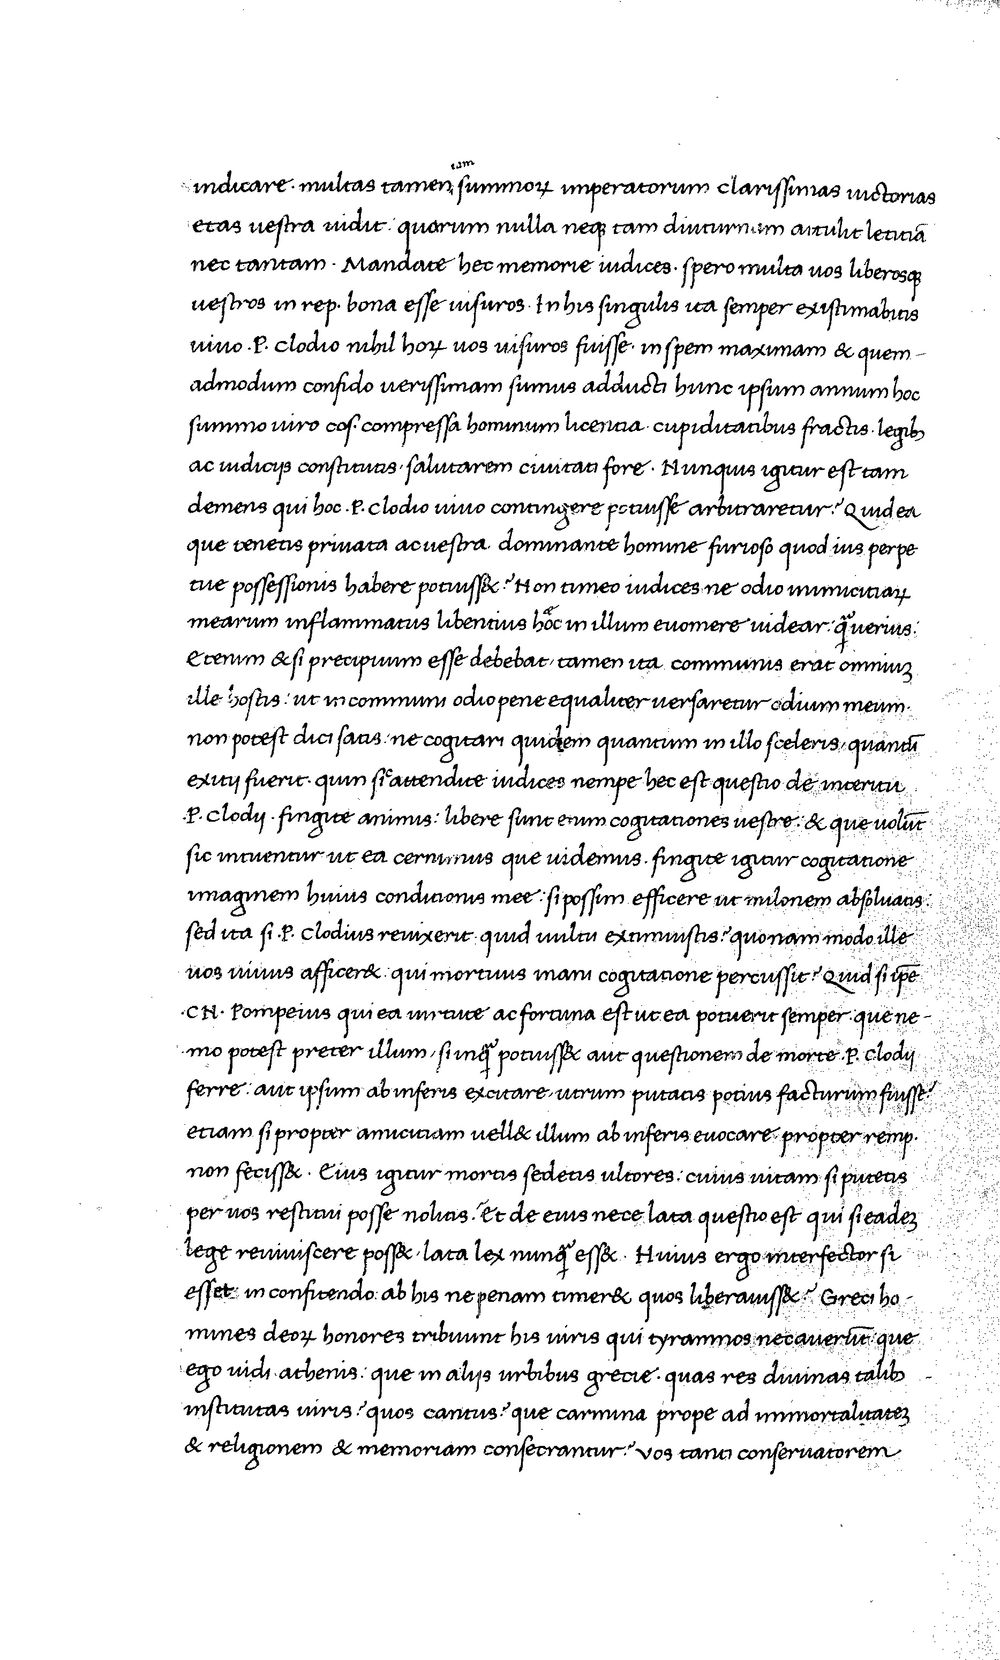 indicare. multas tamen iam summoꝝ imperatorum clarissimas uictorias
etas uestra uidit: quarum nulla neqꝫ tam diuturnam attulit letitiā
nec tantam. Mandate hec memorie iudices. spero multa uos liberosqꝫ
uestros in rep. bona esse uisuros. In his singulis ita semper existimabitis
uiuo .P. Clodio nihil hoꝝ uos uisuros fuisse. in spem maximam & quem-
admodum confido uerissimam sumus adducti hunc ipsum annum hoc
summo uiro cos. compressa hominum licentia. cupiditatibus fractis. legibꝫ
ac iudicijs constitutis, salutarem ciuitati fore. Nunquis igitur est tam
demens qui hoc .P. Clodio uiuo contingere potuisse arbitraretur? Quid ea
que tenetis priuata ac uestra. dominante homine furioso quod ius perpe
tue possessionis habere potuiss&? Non timeo iudices ne odio inimicitiaꝝ
mearum inflammatus libentius hęc in illum euomere uidear: q̄ uerius:
Etenim & si precipuum esse debebat, tamen ita communis erat omniuꝫ
ille hostis: ut in communi odio pene equaliter uersaretur odium meum.
non potest dici satis: ne cogitari quidem quantum in illo sceleris, quantū
exitij fuerit. quin sic attendite iudices nempe hec est questio de interitu
.P. Clodij. fingite animis: libere sunt enim cogitationes uestre: & que uolūt
sic intuentur ut ea cernimus que uidemus. fingite igitur cogitatione
imaginem huius conditionis mee: si possim efficere ut milonem absoluatis:
sed ita si .P. Clodius reuixerit. quid uultu extimuistis? quonam modo ille
uos uiuus afficer& qui mortuus inani cogitatione percussit? Quid si ip̄e
.CN. Pompeius qui ea uirtute ac fortuna est ut ea potuerit semper que ne-
mo potest preter illum, si inq̄ potuiss& aut questionem de morte .P. Clodij
ferre: aut ipsum ab inferis excitare, utrum putatis potius facturum fuisse?
etiam si propter amicitiam uell& illum ab inferis euocare. propter remp.
non feciss&. Eius igitur mortis sedetis ultores: cuius uitam si putetis
per uos restitui posse nolitis. Et de eius nece lata questio est qui si eadeꝫ
lege reuiuiscere poss&, lata lex nunq̄ ess&. Huius ergo interfector si
esset: in confitendo ab his ne penam timer& quos liberauiss&? Greci ho-
mines deoꝝ honores tribuunt his uiris qui tyrannos necauerūt: que
ego uidi athenis: que in alijs urbibus grecie. quas res diuinas talibꝫ
institutas uiris? quos cantus? que carmina prope ad immortalitateꝫ
& religionem & memoriam consecrantur? Vos tanti conseruatorem